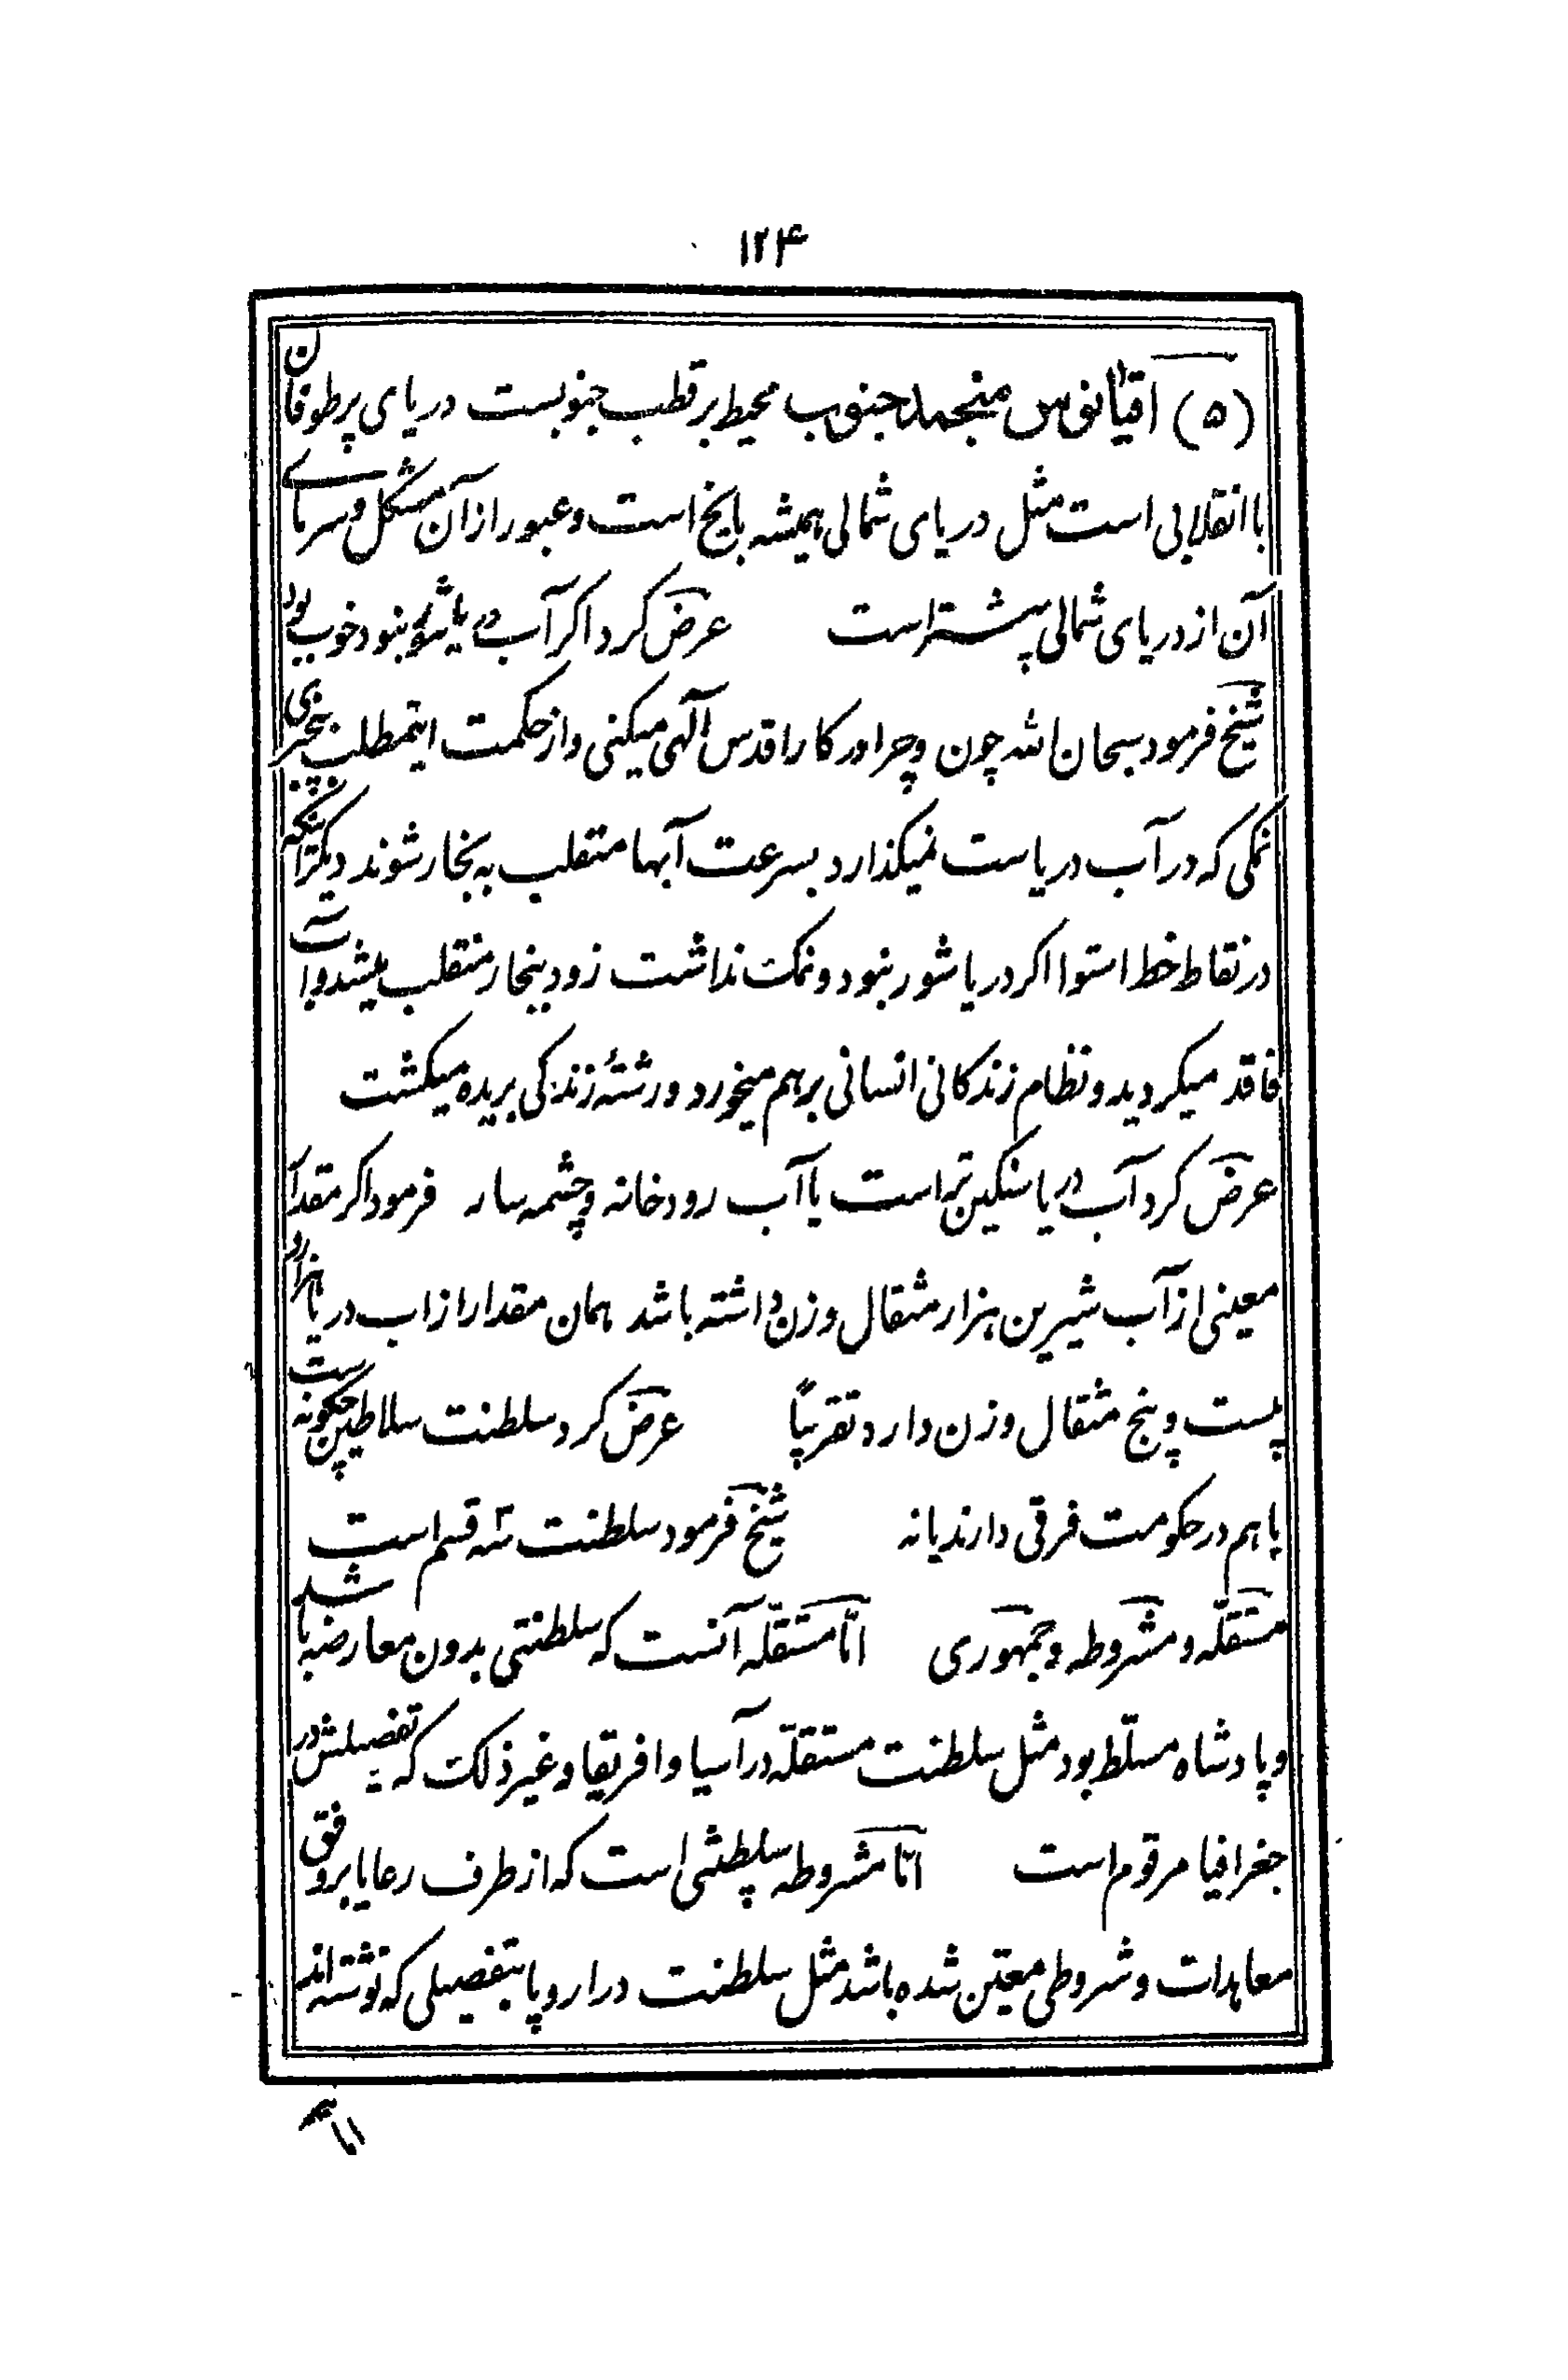 ۱۲۴
(۵) اقیانوس منجمد جنوب محیط بر قطب جنوبست دریای پرطوفان
با انقلابی است مثل دریای شمالی همیشه با یخ است و عبور از آن مشکل و سرمای
آن از دریای شمالی بیشتر است عرض کرد اکر آب دریا شور نبود خوب بود
شیخ فرمود سبحان الله چون و چرا در کار اقدس آلهی میکنی و از حکمت اینمطلب بیخبری
نمکی که در آب دریاست نمیکذارد بسرعت آبها متقلب به بخار شوند دیکر اینکه
در نقاط خط استوا اکر دریا شور نبود و نمک نداشت زود ببخار منقلب میشد و آب
فاقد میکردید و نظام زندکانی انسانی برهم میخورد و رشتهٔ زندکی بریده میکشت
عرض کرد آب دریا سنکین تر است یا آب رودخانه و چشمه سار فرمود اکر مقدار
معینی از آب شیرین هزار مثقال وزن داشته باشد همان مقدار از اب دریا هزار و
بیست و پنج مثقال وزن دارد تقریباً عرض کرد سلطنت سلاطین چکونه است
با هم در حکومت فرقی دارند یا نه شیخ فرمود سلطنت سه قسم است
مستقلّه و مشروطه و جمهوری امّا مستقلّه آنست که سلطنتی بدون معارضه باشد
و پادشاه مسلّط بود مثل سلطنت مستقلّه در آسیا و افریقا و غیر ذلک که تفصیلش در
جغرافیا مرقوم است امّا مشروطه سلطنتی است که از طرف رعایا بر وفق
معاهدات و شروطی معیّن شده باشد مثل سلطنت در اروپا بتفصیلی که نوشته اند